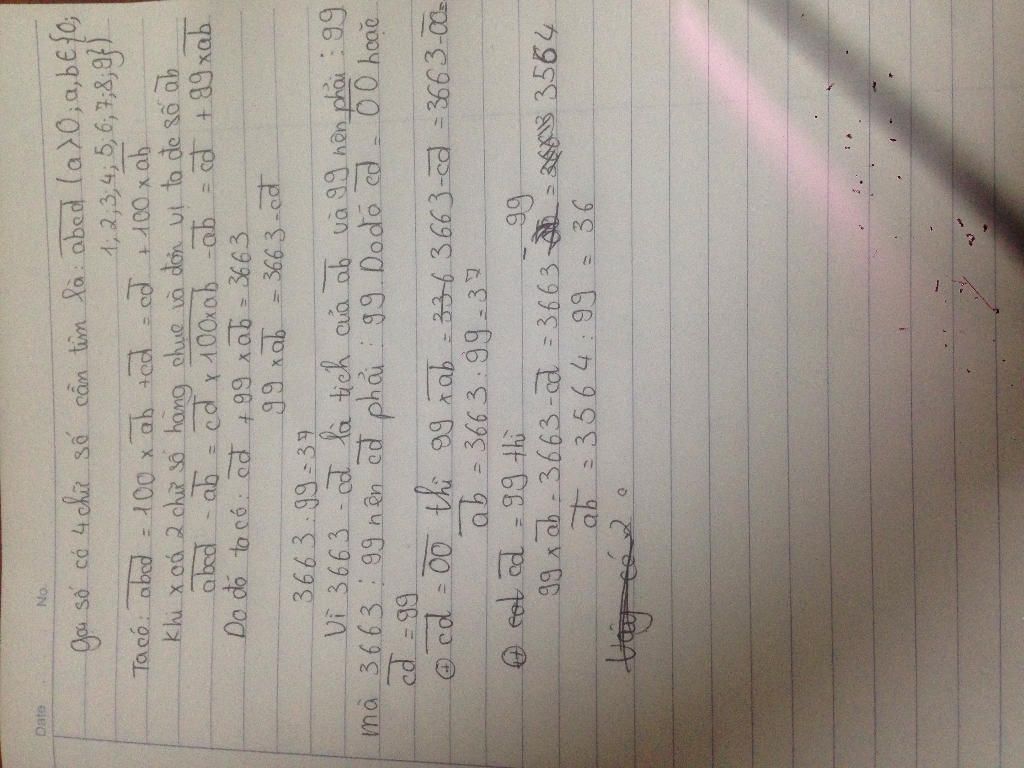 Date No.
Gọi số có 4 chữ số cần tìm là: abcd (a > 0; a, b ∈ {0;
1, 2, 3, 4, 5, 6, 7, 8, 9})
Ta có: abcd = 100 x ab + cd = cd + 100 x ab
Khi xoá 2 chữ số hàng chục và đơn vị ta đc số ab
abcd - ab = cd x 100 x ab - ab = cd + 99 x ab
Do đó ta có: cd + 99 x ab = 3663
99 x ab = 3663 - cd
3663 : 99 = 37
Vì 3663 - cd là tích của ab và 99 nên phải ⋮ 99
mà 3663 ⋮ 99 nên cd phải ⋮ 99. Do đó cd = 00 hoặc
cd = 99
+ cd = 00 thì 99 x ab = 336 3663 - cd = 3663 - 00 =
ab = 3663 : 99 = 37
+ cd = 99 thì
99 x ab = 3663 - cd = 3663 - 99 = 3564
ab = 3564 : 99 = 36
Vậy có 2